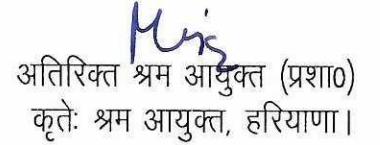 अतिरिक्त श्रम आयुक्त (प्रशा0)
कृतेः श्रम आयुक्त, हरियाणा।